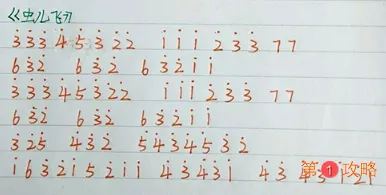 《虫儿飞》
3̇3̇3̇ 4̇5̇3̇2̇2̇ 1̇1̇1̇ 2̇3̇3̇ 77
63̇2̇ 63̇2̇ 63̇2̇1̇1̇
3̇3̇3̇4̇5̇3̇2̇2̇ 1̇1̇1̇2̇3̇3̇ 77
63̇2̇ 63̇2̇ 63̇2̇1̇1̇
3̇2̇5̇ 4̇3̇2̇ 5̇4̇3̇4̇5̇3̇2̇
1̇63̇2̇1̇5̇2̇1̇1̇ 4̇3̇4̇3̇1̇ 4̇3̇ 4̇3̇
第1攻略